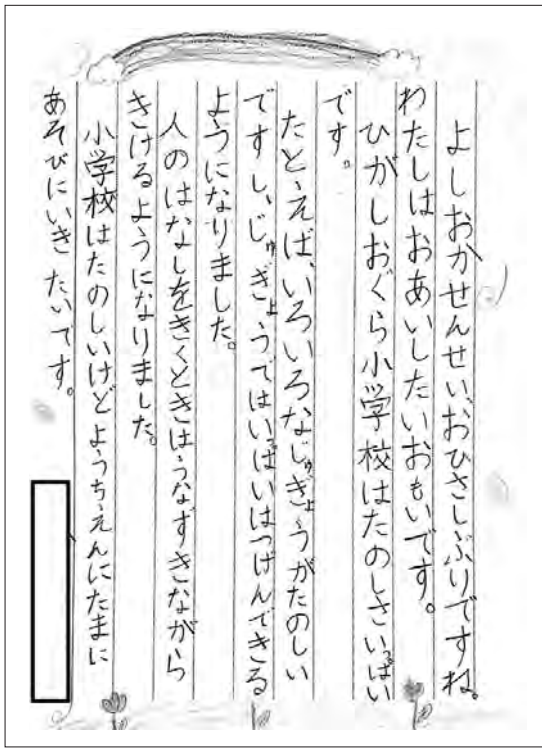 よしおかせんせい、おひさしぶりですね。
わたしはおあいしたいおもいです。
ひがしおぐら小学校はたのしさいっぱい
です。
たとえば、いろいろなじゅぎょうがたのしい
ですし、じゅぎょうではいっぱいはつげんできる
ようになりました。
人のはなしをきくときはうなずきながら
きけるようになりました。
小学校はたのしいけどようちえんにたまに
あそびにいきたいです。